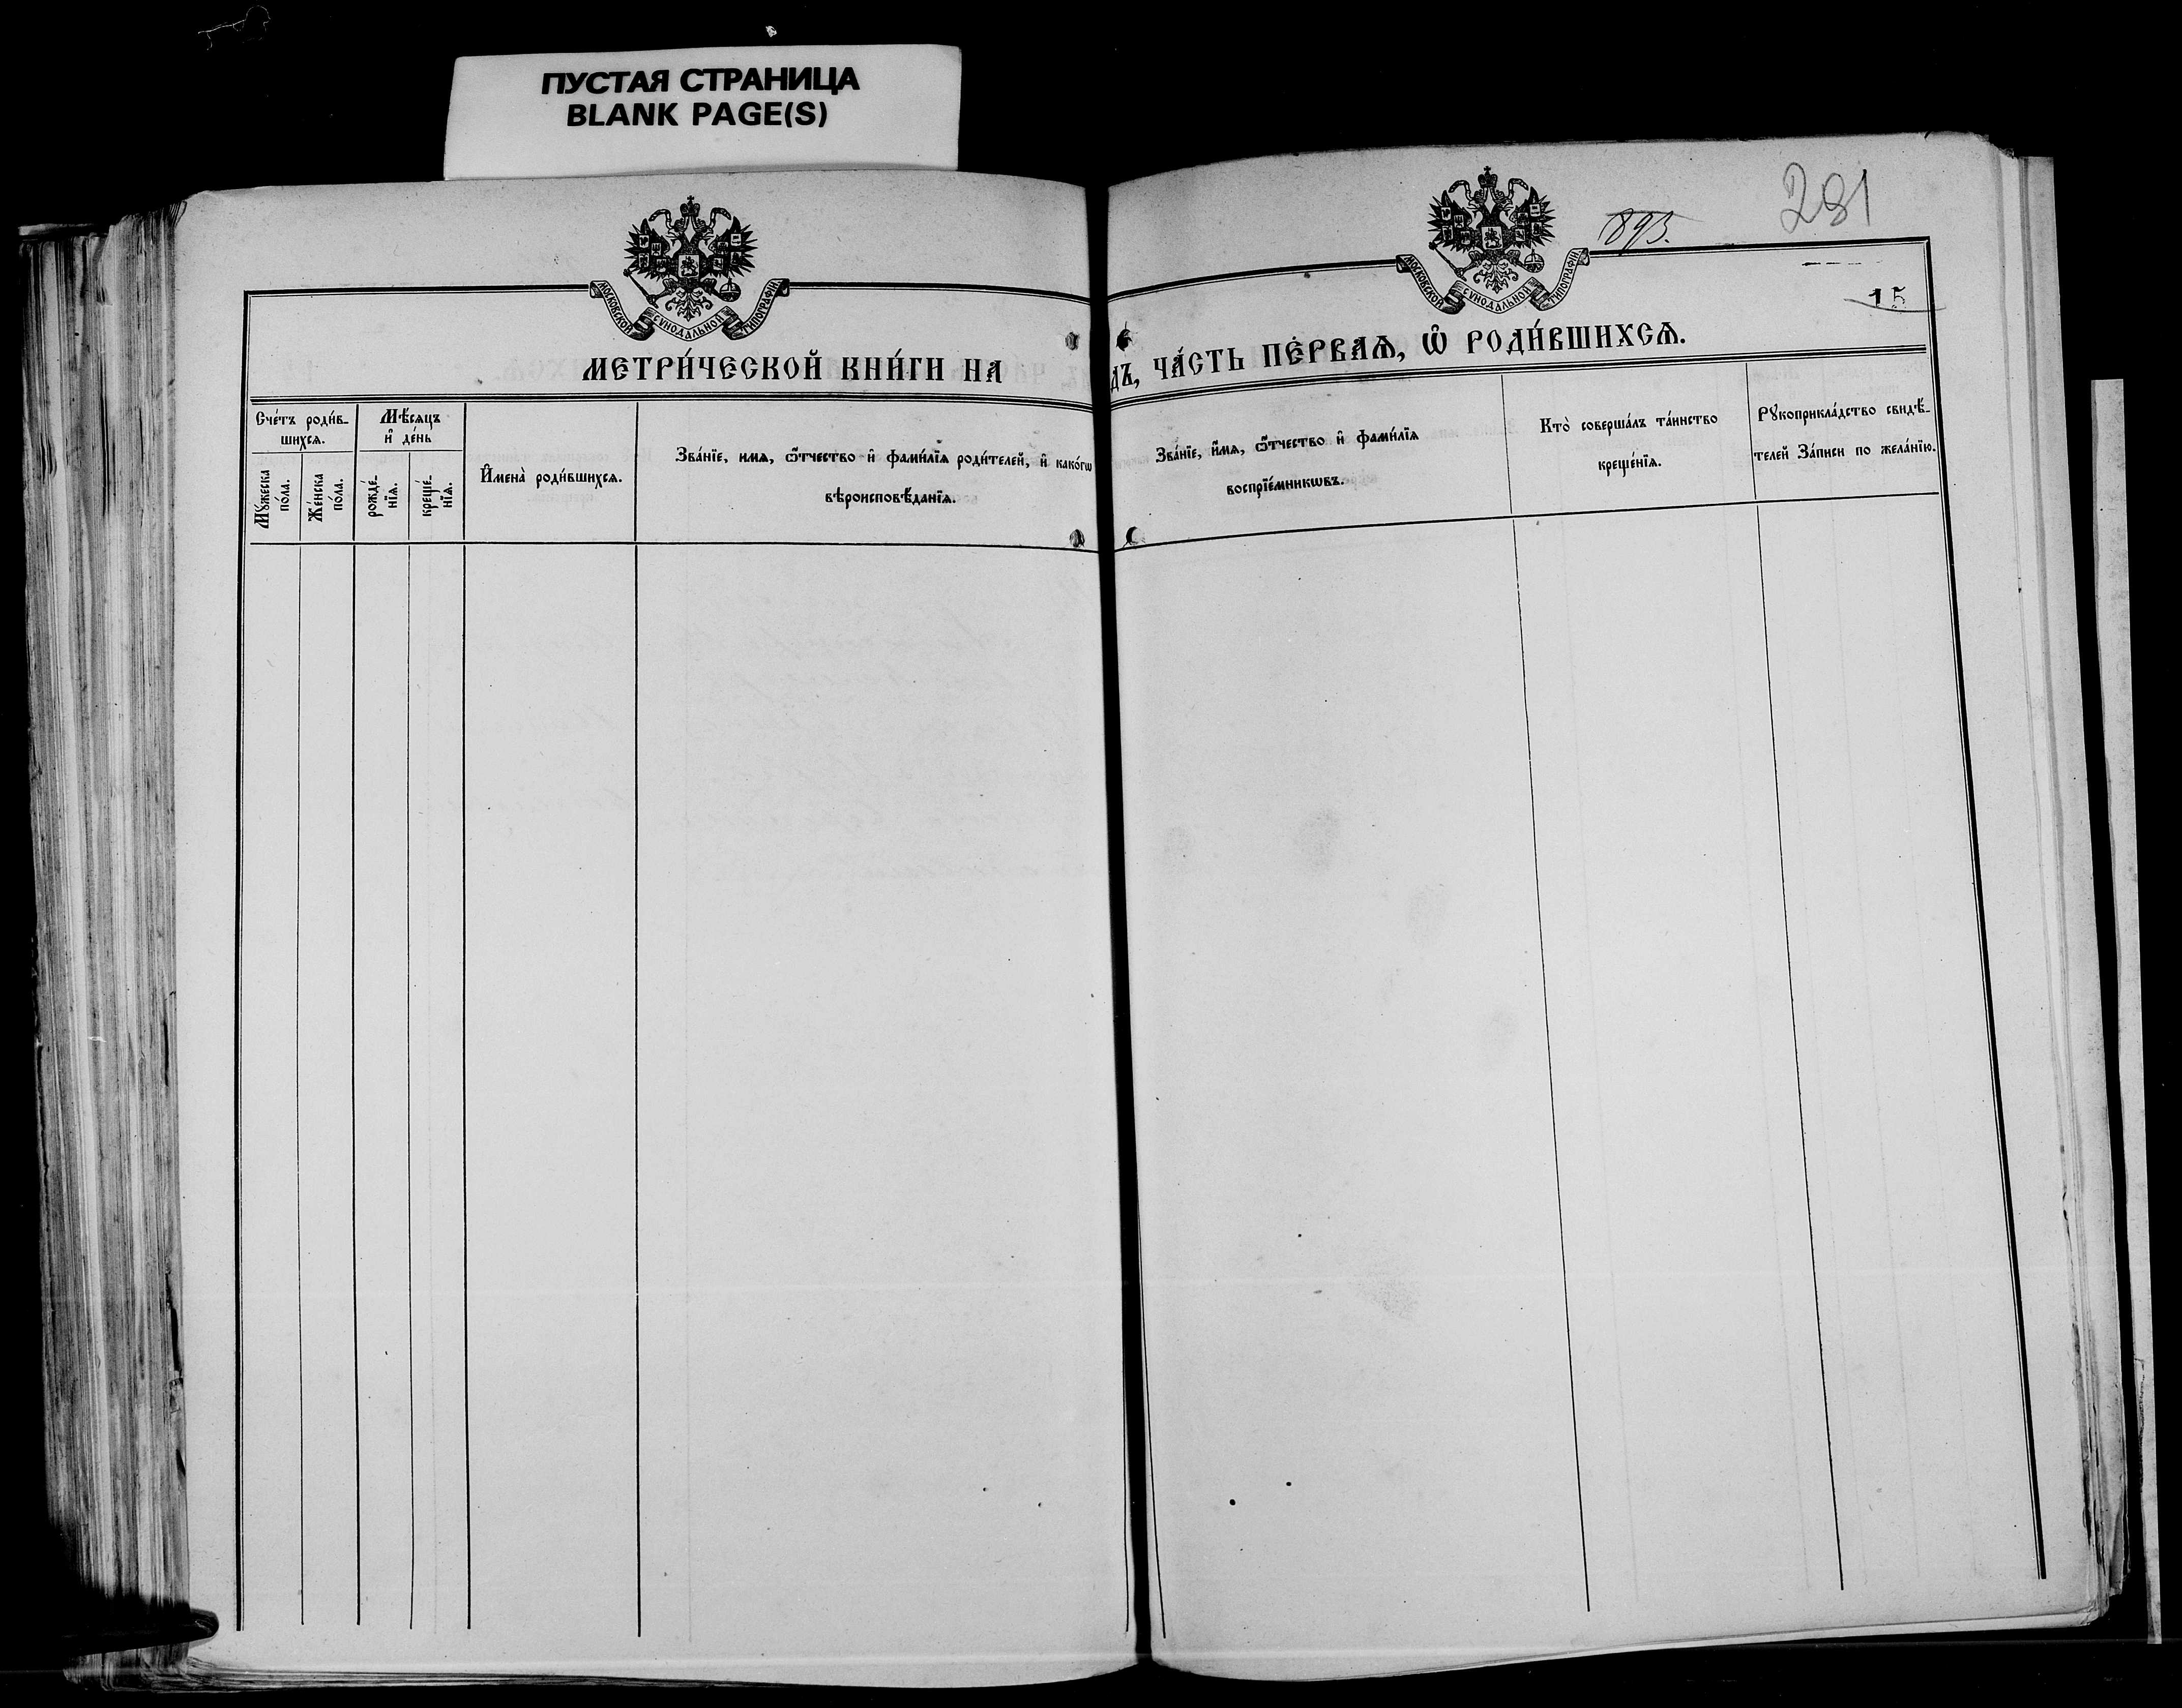 ПУСТАЯ СТРАНИЦА
BLANK PAGE(S)
МОСКОВСКОЙ СѴНОДАЛЬНОЙ ТИПОГРАФІИ
МЕТРИ́ЧЕСКОЙ КНИ́ГИ НА
Сче́тъ роди́в-
шихсѧ.
Мѣ́сѧцъ
и҆ де́нь
Мꙋ́жеска
по́ла.
Же́нска
по́ла.
рожде́-
нїѧ.
креще́-
нїѧ.
И҆мена̀ роди́вшихсѧ.
Зва́нїе, имѧ, ѻ҆́тчество и҆ фами́лїѧ роди́телей, и҆ како́гѡ
вѣроисповѣ́данїѧ.
281
1893.
МОСКОВСКОЙ СѴНОДАЛЬНОЙ ТИПОГРАФІИ
15
ДЪ, ЧА́СТЬ ПЕ́РВАѦ, Ѡ҆ РОДИ́ВШИХСѦ.
Зва́нїе, и҆́мѧ, ѻ҆́тчество и҆ фами́лїѧ
воспрїе́мникѡвъ.
Кто̀ соверша́лъ та́инство
креще́нїѧ.
Рꙋкоприкла́дство свидѣ́-
телей За́писи по жела́нїю.